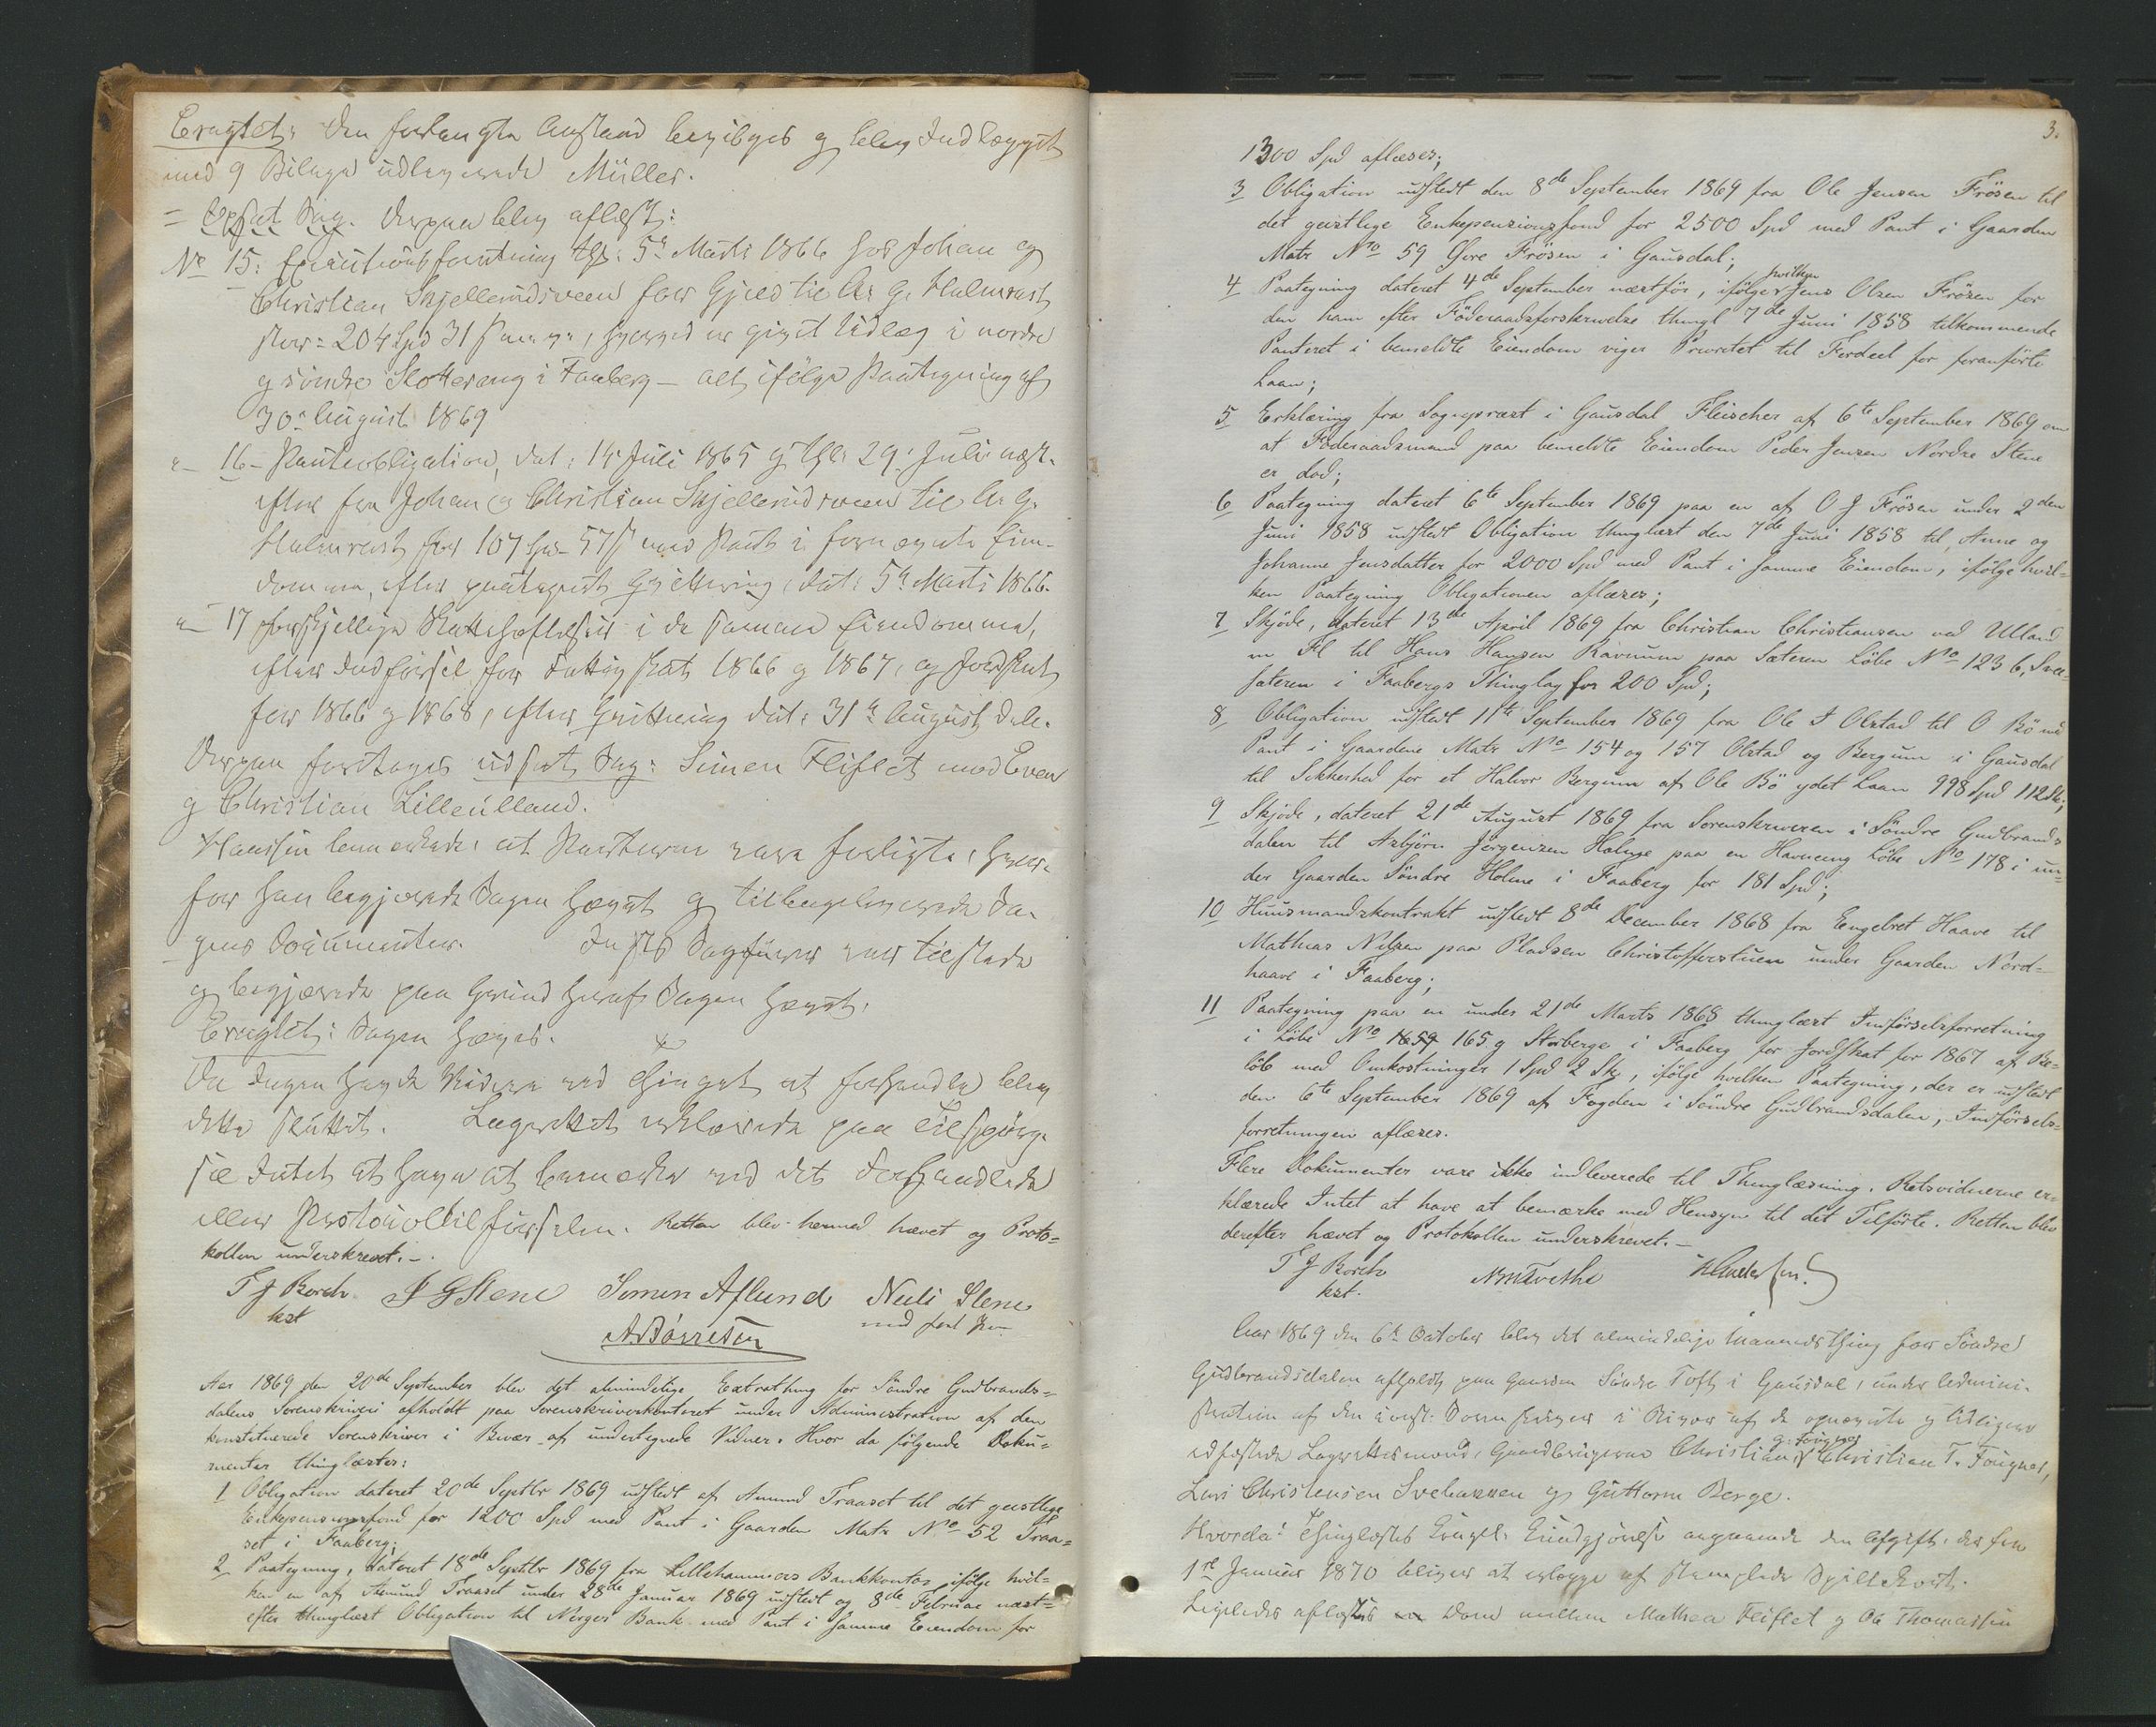 Eragtet: Den forlangte Anstand bevilges og blev Indlægget
med 9 Bilage udleverede Müller.
= Opsat Sag. Derpaa blev aflæst:
No 15: Executionsforretning thgl: 5te Marts 1866 hos Johan og
Christian Skjellerudsveen for Gjæld til A. G. Halmrast
stor: 204 Spd 31 s, hvorved er givet Udlæg i nordre
og søndre Slottveeng i Faaberg – alt ifølge Paategning af
30te August 1869
" – 16 – Panteobligation, dat: 14 Juli 1865 og thgl. 29. Juli næst-
efter fra Johan og Christian Skjellerudsveen til A. G.
Halmrast for 107 Spd – 57 s med Pant i fornævnte Eien-
domme, efter paategnet Qvittering, dat: 5te Marts 1866.
" – 17 forskjellige Skattehæftelser i de samme Eiendomme,
efter Indførsel for Fattigskat 1866 og 1867, og Jordskat
for 1866 og 1868, efter Qvittering dat: 31te August d. A.
Derpaa foretages udsat Sag: Simen Fliflet mod Even
og Christian Lilleulland.
Hanssen bemærkede, at Parterne vare forligte, hvor-
for han begjærede Sagen hævet og tilbageleverede Sa-
gens Documenter. Sagfører var tilstede
og begjærede paa Grund heraf Sagen hævet.
Eragtet: Sagen hæves.
Da Ingen havde Videre ved Thinget at forhandle blev
dette sluttet. Lagrettet erklærede paa Tilspørg-
sel Intet at have at bemærke ved det Forhandlede
eller Protocoltilførselen. Retten blev hermed hævet og Proto=
kollen underskrevet. –
T J Borch J G Stene Simen Aflund Niels Stene
kst med ført Pen
A Børresen
Aar 1869 den 20de September blev det almindelige Extrathing for Söndre Gudbrands=
dalens Sorenskriveri afholdt paa Sorenskriverkontoret under Administration af den
konstituerede Sorenskriver i Bivær af undertegnede Vidner. Hvor da følgende Doku=
menter thinglæstes:
1 Obligation dateret 20de Septbr 1869 udstedt af Amund Traaset til det geistlige
Enkepensionsfond for 1200 Spd med Pant i Gaarden Matr No 52 Traa=
set i Faaberg;
2 Paategning, dateret 18de Septbr 1869 fra Lillehammers Bankkontor, ifølge hvil=
ken en af Amund Traaset under 28de Januar 1869 udstedt og 8de Februar næst=
efter thinglæst Obligation til Norges Bank med Pant i samme Eiendom for
3.
1300 Spd aflæses;
3 Obligation udstedt den 8de September 1869 fra Ole Jensen Frösen til
det geistlige Enkepensionsfond for 2500 Spd med Pant i Gaarden
Matr No 59 Øvre Frösen i Gausdal;
4 Paategning dateret 4de September næstfør, ifølge hvilken Jens Olsen Frösen for
den ham efter Föderaadsforskrivelse thingl 7de Juni 1858 tilkommende
Panteret i bemeldte Eiendom viger Prioritet til Fordeel for foranførte
Laan;
5 Erklæring fra Sognepræst i Gausdal Fleischer af 6te September 1869 om
at Föderaadsmand paa bemeldte Eiendom Peder Jensen Nordre Stene
er død;
6 Paategning dateret 6te September 1869 paa en af O J Frösen under 2den
Juni 1858 udstedt Obligation thinglæst den 7de Juni 1858 til Anne og
Johanne Jensdatter for 2000 Spd med Pant i samme Eiendom, ifølge hvil=
ken Paategning Obligationen aflæses;
7 Skjöde, dateret 13de April 1869 fra Christian Christiansen ved Ulland
m Fl til Hans Hansen Ravnum paa Sæteren Löbe No 123 b, Svee-
sæteren i Faabergs Thinglag for 200 Spd;
8 Obligation udstedt 11te September 1869 fra Ole T Olstad til O Bö med
Pant i Gaardene Matr No 154 og 157 Olstad og Bergum i Gausdal
til Sikkerhed for et Halvor Bergum af Ole Bö ydet Laan 998 Spd 112 Sk;
9 Skjöde, dateret 21de August 1869 fra Sorenskriveren i Söndre Gudbrands
dalen til Asbjörn Jörgensen Holme paa en Havneeng Löbe No 178 i un=
der Gaarden Söndre Holme i Faaberg for 181 Spd;
10 Huusmandskontrakt udstedt 8de December 1868 fra Engebret Haave til
Mathias Nilsen paa Pladsen Christofferstuen under Gaarden Nord=
haave i Faaberg;
11 Paategning paa en under 21de Marts 1868 thinglæst Indførselsforretning
i Löbe No 165 g Storberge i Faaberg for Jordskat for 1867 af Be=
löb med Omkostninger 1 Spd 2 Sk, ifølge hvilken Paategning, der er udstedt
den 6te September 1869 af Fogden i Söndre Gudbrandsdalen, Indførsels=
forretningen aflæses.
Flere Dokumenter vare ikke indleverede til Thinglæsning. Retsvidnerne er=
klærede Intet at have at bemærke med Hensyn til det Tilførte. Retten blev
derefter hævet og Protokollen underskrevet. –
T J Borch
kst.
Aar 1869 den 6te October blev det almindelige Maanedsthing for Söndre
Gudbrandsdalen afholdt paa Gaarden Söndre Toft i Gausdal, under Admini-
stration af den const: Sorenskriver i Bivær af de opnævnte og tidligere
edfæstede Lagrettesmænd, Gaardbrugerne Christian G. Fougner, Christian T. Fougner,
Lars Christensen Svehaugen og Guttorm Berge.
Hvorda: Thinglæstes Kongel: Kundgjørelse angaaende den Afgift, der fra
1ste Januar 1870 bliver at erlægge af stemplede Spillekort.
Ligeledes aflæstes Dom mellem Mathea Fliflet og Ole Thomassen